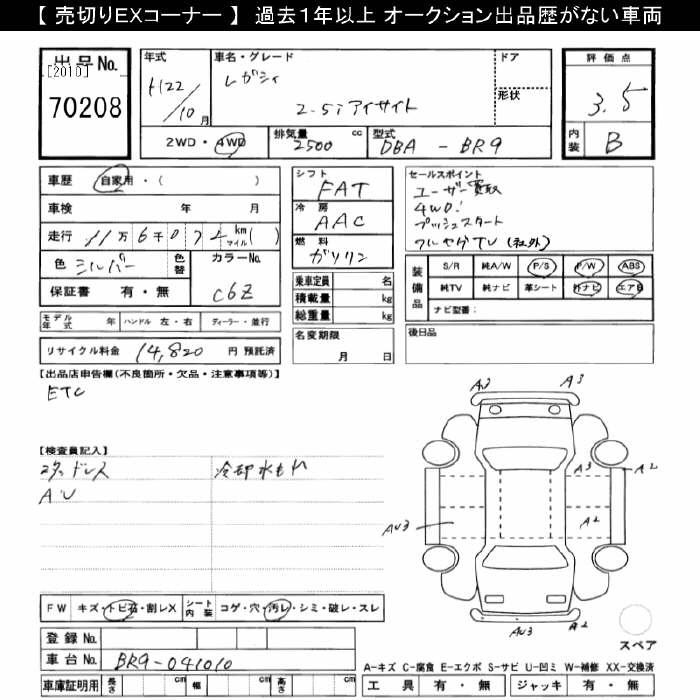 【 売切りEXコーナー 】 過去１年以上 オークション出品歴がない車両
出品No. [2010] 70208
年式 H22/10月
車名・グレード レガシィ 2-5i アイサイト
ドア
形状
2WD・4WD
排気量 2500 cc
型式 DBA - BR9
評価点 3.5
内装 B
車歴 自家用・( )
車検 年 月
走行 11万6千072 km マイル( )
色 シルバー 色替
カラーNo. C6Z
保証書 有・無
モデル年式 年 ハンドル 左・右 ディーラー・並行
リサイクル料金 14,820 円 預託済
シフト FAT
冷房 AAC
燃料 ガソリン
乗車定員 名
積載量 kg
総重量 kg
名変期限 月 日
セールスポイント
ユーザー買取
4WD!
プッシュスタート
TV(社外)
装備品 S/R 純A/W P/S P/W ABS
純TV 純ナビ 革シート 外ナビ エアB
ナビ型番:
後日品
【出品店申告欄(不良箇所・欠品・注意事項等)】
ETC
【検査員記入】
スタッドレス 冷却水もれ
AU
A3 A3
A3 A2
AU3 A2
AU3 A2
FW キズ・トビ石・割レX シート内装 コゲ・穴・汚レ・シミ・破レ・スレ
登録No.
車台No. BR9-041010
車庫証明用 長さ cm 幅 cm 高さ cm
スペア
A-キズ C-腐食 E-エクボ S-サビ U-凹ミ W-補修 XX-交換済
工具 有・無 ジャッキ 有・無